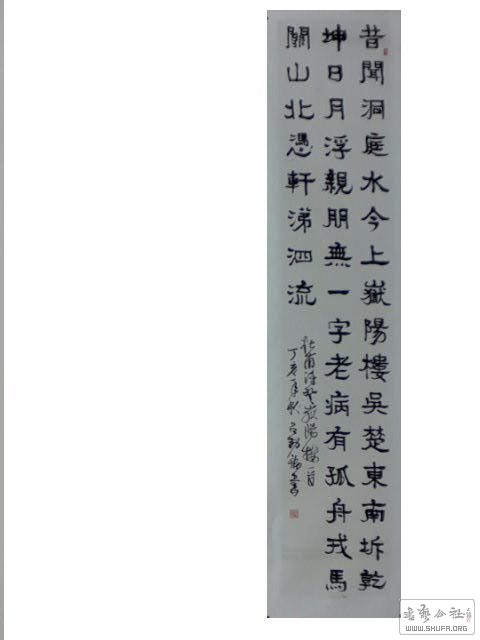 昔聞洞庭水今上嶽陽樓吳楚東南坼乾
坤日月浮親朋無一字老病有孤舟戎馬
關山北憑軒涕泗流
杜甫詩登嶽陽樓一首
丁亥年秋
書藝公社
WWW.SHUFA.ORG